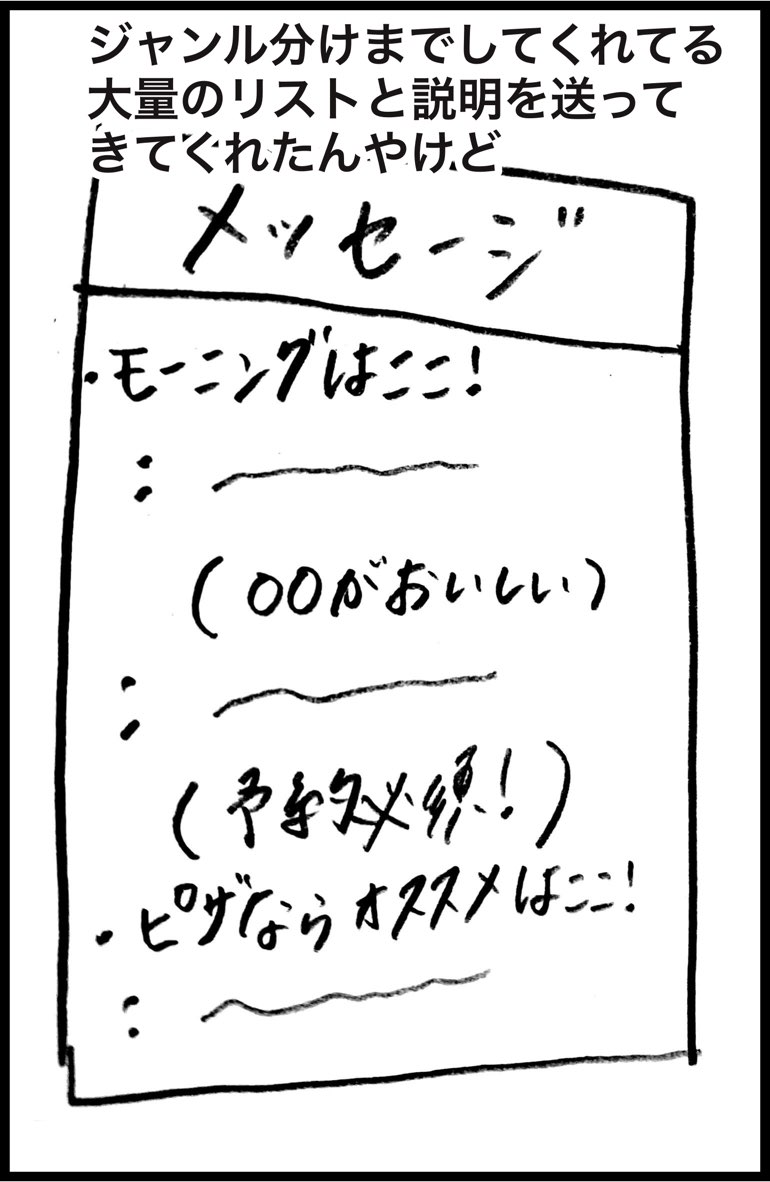 ジャンル分けまでしてくれてる
大量のリストと説明を送って
きてくれたんやけど
メッセージ
・モーニングはここ!
:
(〇〇がおいしい)
:
(予約必須!)
・ピザならオススメはここ!
: